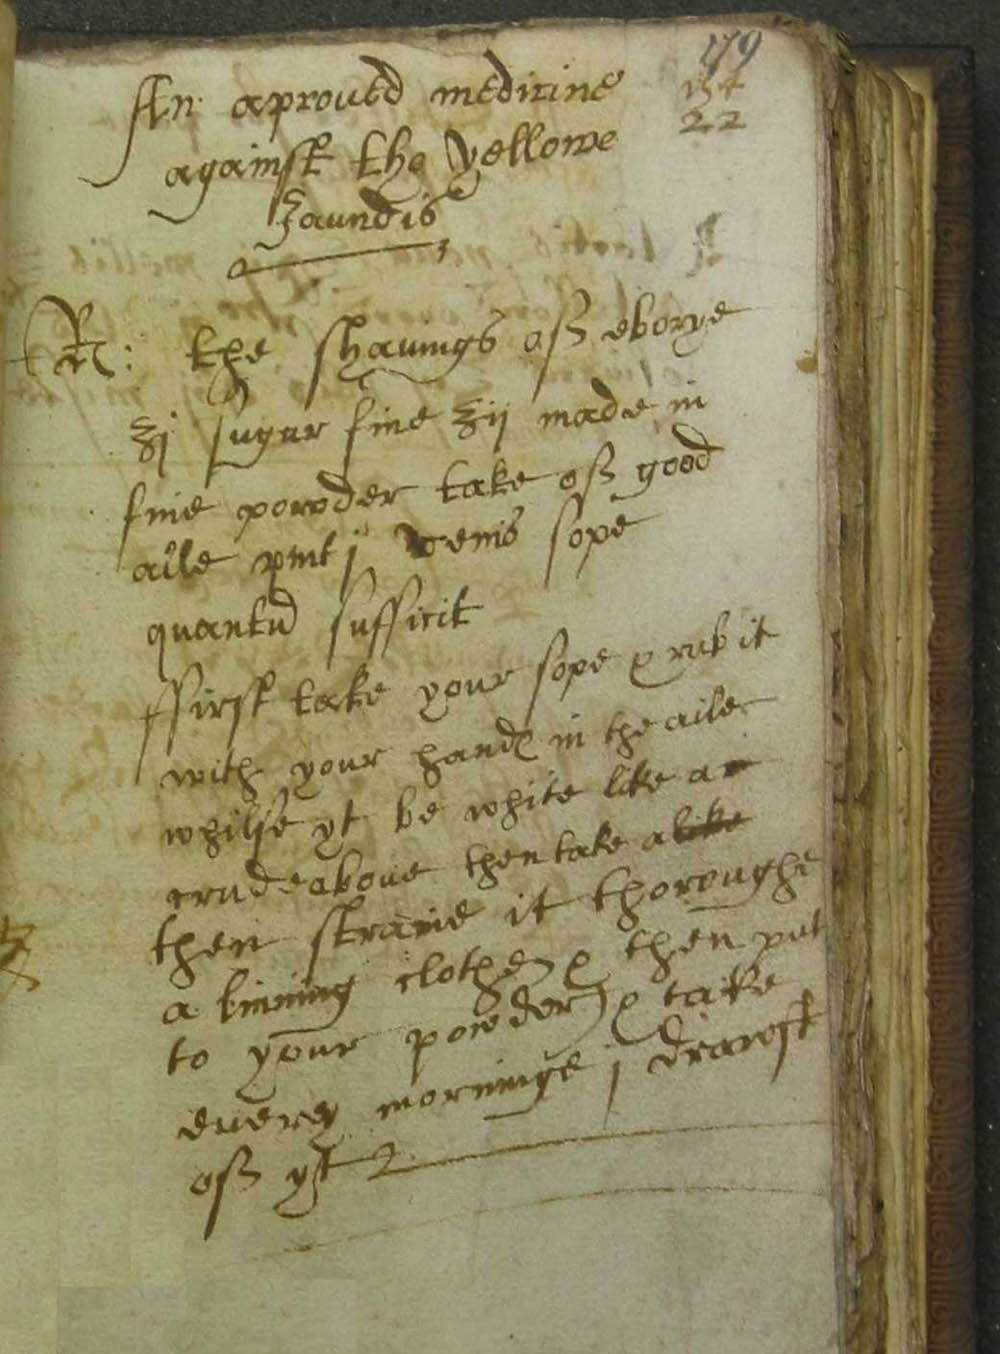 179
22
An aproued medicine
against the yellowe
Jaundis
R: the shauings off eborye
ʒj sugar fine ʒij made in
fine powder take off good
aile pint j venis sope
quantū sufficit
ffirst take your sope & rub it
with your hand in the aile
whilse yt be white like a
crude aboue then take a like
then straine it thoroughe
a linning clothe & then put
to your powder & take
euerey morninge j drawft
off yt